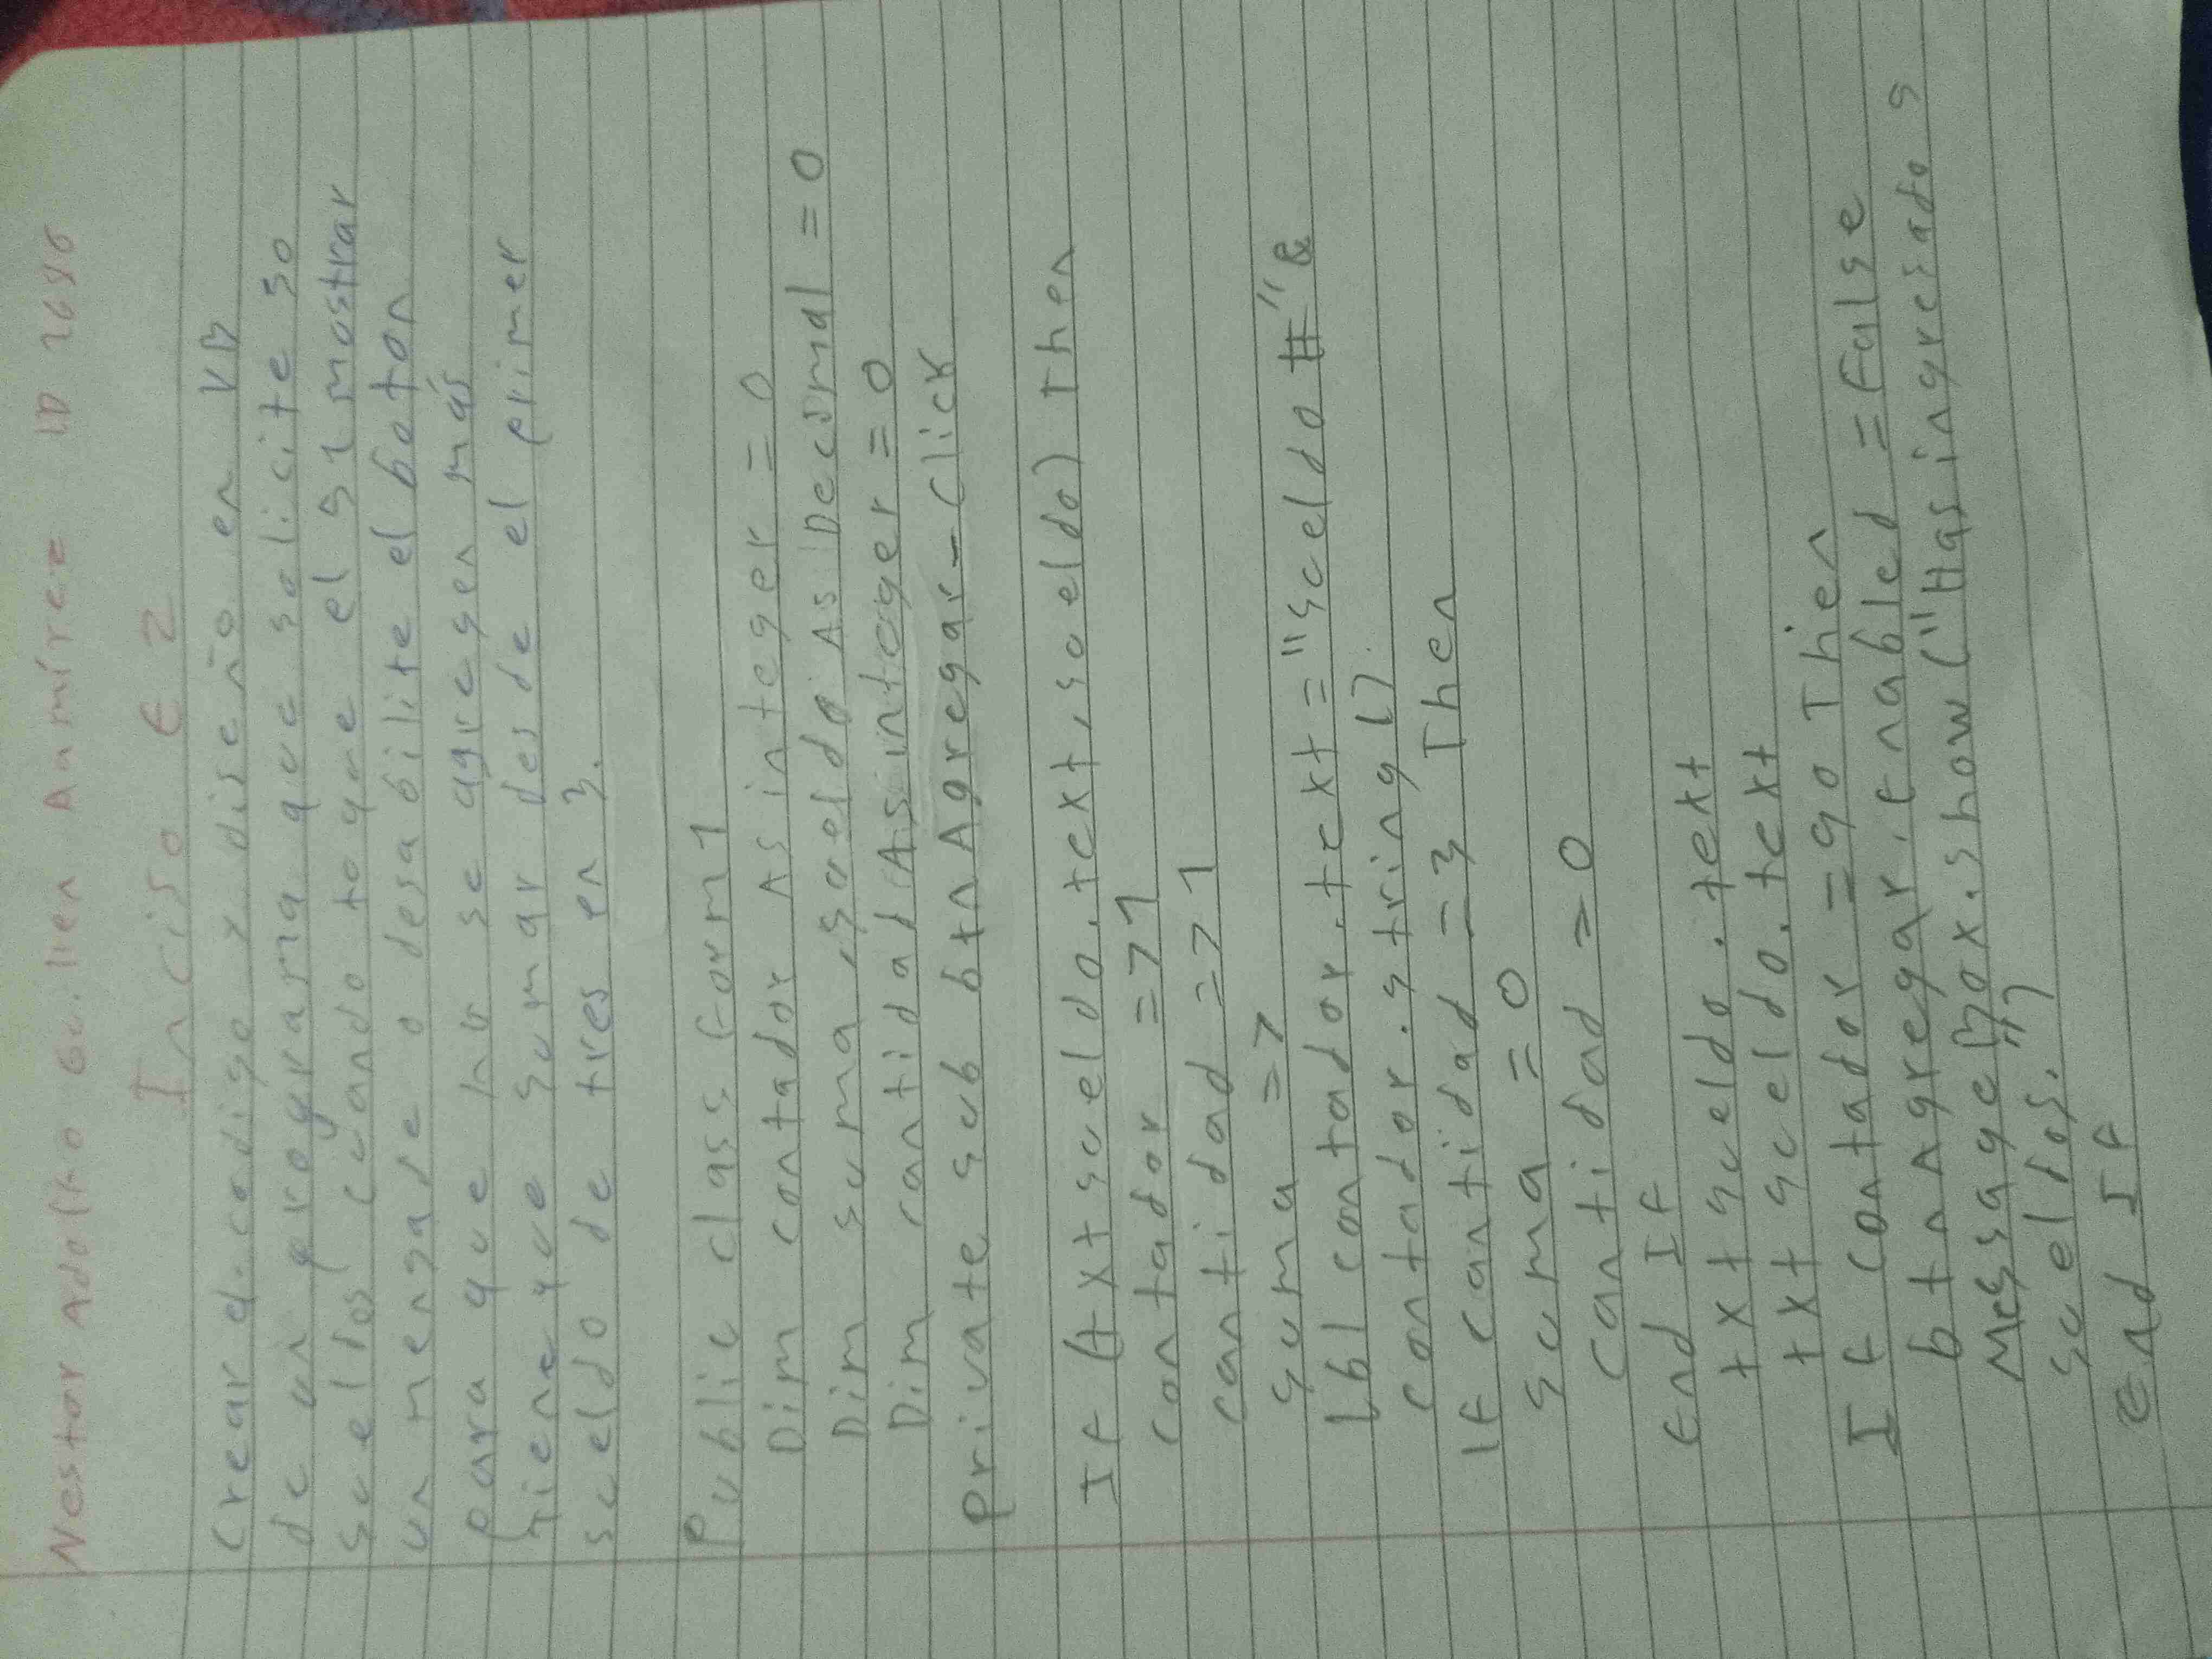 Nestor Adolfo Guillen Ramírez ID 2686
Inciso E2
Crear el codigo y diseño en VB
de un programa que solicite 50
sueldos cuando toque el 51 mostrar
un mensaje o desabilite el boton
para que no se agregen más
tiene que sumar desde el primer
sueldo de tres en 3.
Public class Form1
Dim contador As integer = 0
Dim suma, sueldo As Decimal = 0
Dim cantidad As integer = 0
Private sub btnAgregar_Click
If (txtsueldo.text, sueldo) Then
contador => 1
cantidad => 1
suma =>
lblcontador.text = "sueldo #" &
contador.string()
If cantidad = 3 Then
suma = 0
cantidad = 0
End If
txtsueldo.text
txtsueldo.text
If contador = 90 Then
btnAgregar.Enabled = False
MessageBox.show("Has ingresado 9
sueldos.")
End If